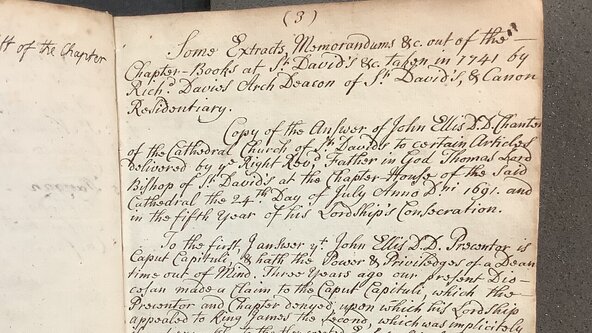 (3)
ft of the Chapter
Some Extracts, Memorandums &c. out of the
Chapter-Books at St. David's &c. taken in 1741 by
Richd. Davies Arch Deacon of St. David's, & Canon
Residentiary.
Copy of the Answer of John Ellis D.D. Chanter
of the Cathedral Church of St. Davids to certain Articles
delivered by ye Right Revd. Father in God Thomas Lord
Bishop of St. David's at the Chapter-House of the Said
Cathedral the 24th Day of July Anno Dni 1691. and
in the fifth Year of his Lordship's Consecration.
To the first, I answer yt. John Ellis D.D. Precentor is
Caput Capituli, & hath the Power & Priviledges of a Dean
time out of Mind. Three Years ago our present Dio-
cesan made a Claim to the Caput Capituli, which the
Precentor and Chapter denyed, upon which his Lordship
appealed to King James the Second, which was implicitely